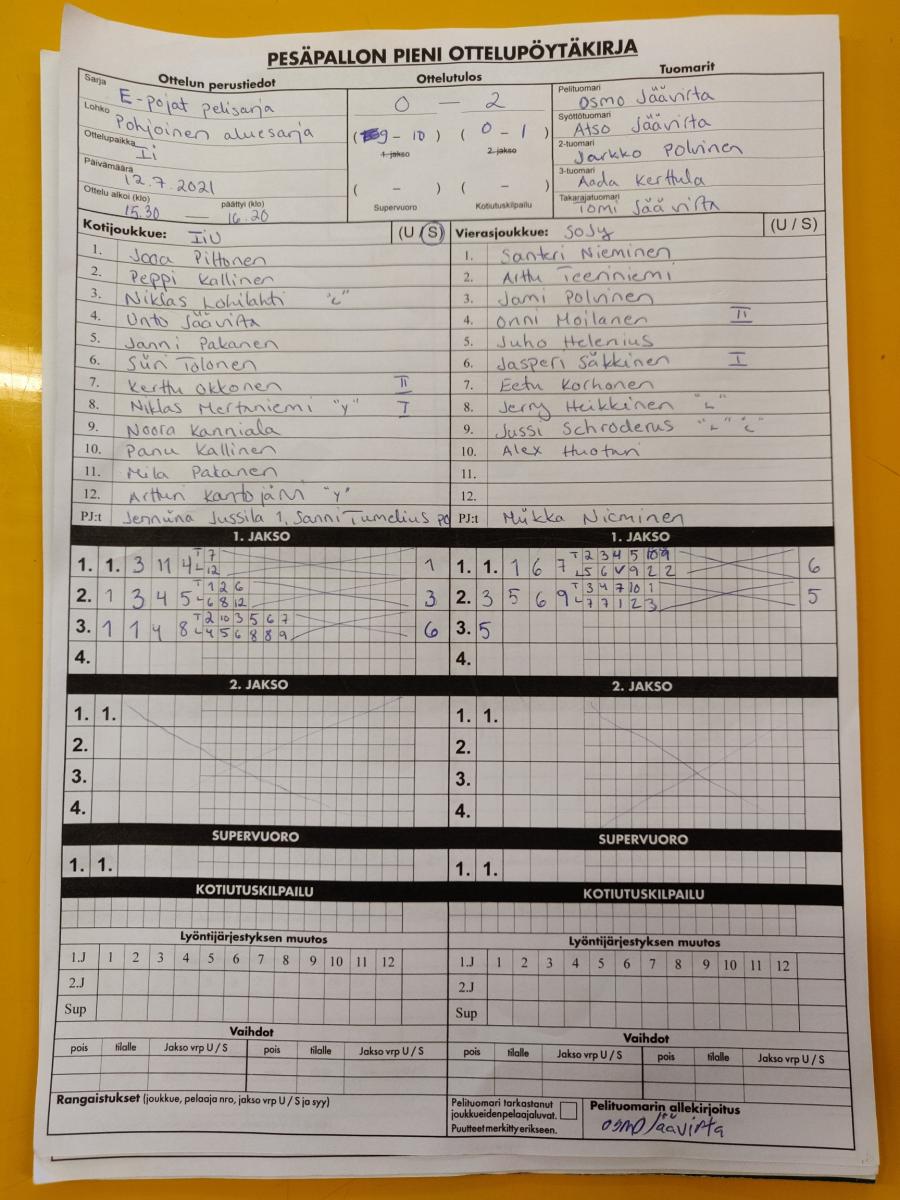 PESÄPALLON PIENI OTTELUPÖYTÄKIRJA
Ottelun perustiedot
Sarja E-pojat pelisarja
Lohko Pohjoinen aluesarja
Ottelupaikka Ii
Päivämäärä 12.7.2021
Ottelu alkoi (klo) 15.30 — päättyi (klo) 16.20
Ottelutulos
0 — 2
( 9 - 10 ) ( 0 - 1 )
1. jakso 2. jakso
( - ) ( - )
Supervuoro Kotiutuskilpailu
Tuomarit
Pelituomari Osmo Jäävirta
Syöttötuomari Atso Jäävirta
2-tuomari Jarkko Polvinen
3-tuomari Aada Kerttula
Takarajatuomari Tomi Jäävirta
Kotijoukkue: IiU (U / S)
1. Jooa Piltonen
2. Peppi Kallinen
3. Niklas Lohilahti "L"
4. Unto Jäävirta
5. Janni Pakanen
6. Siiri Tolonen
7. Kerttu Okkonen II
8. Niklas Mertaniemi "Y" I
9. Noora Kanniala
10. Panu Kallinen
11. Mila Pakanen
12. Artturi Kantojärvi "Y"
PJ:t Jenniina Jussila 1, Sanni Tumelius
Vierasjoukkue: SoJy (U / S)
1. Santeri Nieminen
2. Arttu Teeriniemi
3. Jami Polvinen
4. Onni Moilanen II
5. Juho Helenius
6. Jasperi Säkkinen I
7. Eetu Korhonen
8. Jerry Heikkinen "L"
9. Jussi Schroderus "L" "L"
10. Alex Huoturi
11.
12.
PJ:t Miikka Nieminen
1. JAKSO
1. 1. 3 11 4 T 7 1
L 12
2. 1 3 4 5 T 1 2 6 3
L 6 8 12
3. 1 1 4 8 T 2 10 3 5 6 7 6
L 4 5 6 8 8 9
4.
1. JAKSO
1. 1. 1 6 7 T 2 3 4 5 10 9 6
L 5 6 V 9 2 2
2. 3 5 6 9 T 3 4 7 10 1 5
L 7 7 1 2 3
3. 5
4.
2. JAKSO
1. 1.
2.
3.
4.
2. JAKSO
1. 1.
2.
3.
4.
SUPERVUORO
1. 1.
SUPERVUORO
1. 1.
KOTIUTUSKILPAILU
KOTIUTUSKILPAILU
Lyöntijärjestyksen muutos
1.J 1 2 3 4 5 6 7 8 9 10 11 12
2.J
Sup
Lyöntijärjestyksen muutos
1.J 1 2 3 4 5 6 7 8 9 10 11 12
2.J
Sup
Vaihdot
pois tilalle Jakso vrp U / S pois tilalle Jakso vrp U / S
Vaihdot
pois tilalle Jakso vrp U / S pois tilalle Jakso vrp U / S
Rangaistukset (joukkue, pelaaja nro, jakso vrp U / S ja syy)
Pelituomari tarkastanut
joukkueidenpelaajaluvat.
Puutteet merkitty erikseen.
Pelituomarin allekirjoitus
Osmo Jäävirta